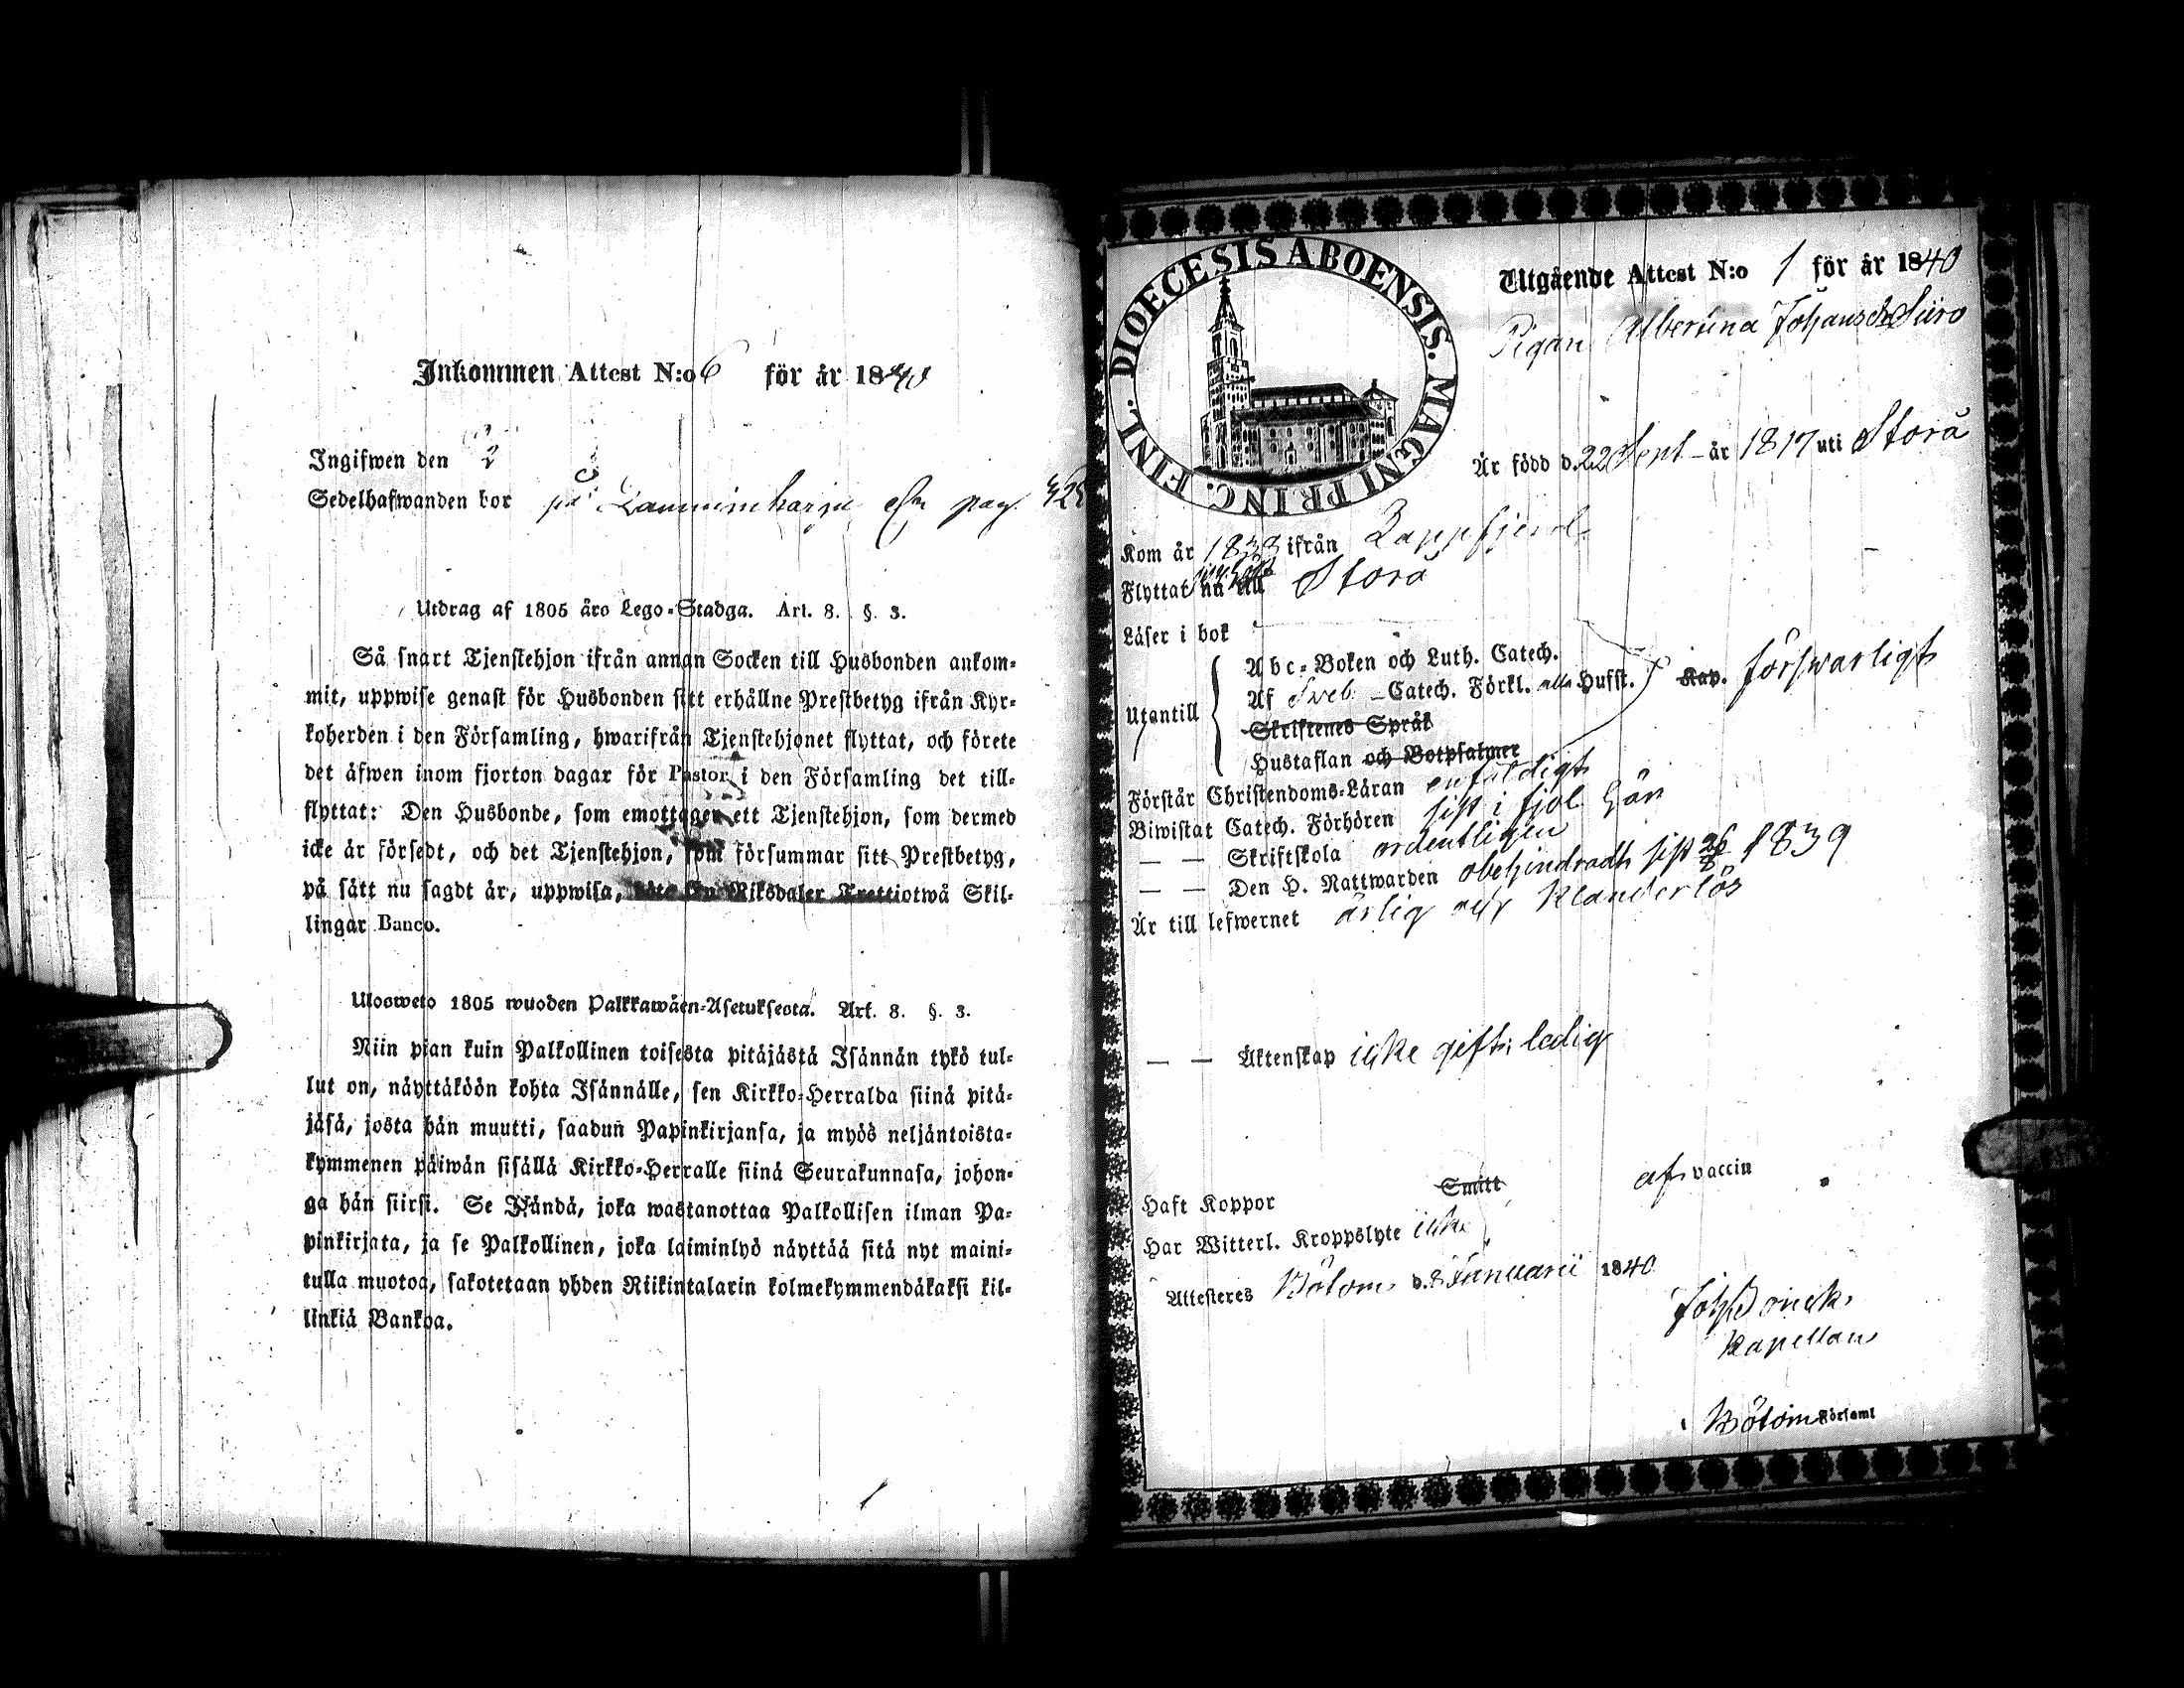 Inkommen Attest N:o 6 för år 1840
Ingifwen den
Sedelhafwanden bor på Lauminharju pag. 325
Utdrag af 1805 års Lego-Stadga. Art. 8. §. 3.
Så snart Tjenstehjon ifrån annan Socken till Husbonden ankom-
mit, uppwise genast för Husbonden sitt erhållne Prestbetyg ifrån Kyr-
koherden i den Församling, hwarifrån Tjenstehjonet flyttat, och förete
det äfwen inom fjorton dagar för Pastor i den Församling det till-
flyttat: Den Husbonde, som emottager ett Tjenstehjon, som dermed
icke är försedt, och det Tjenstehjon, som försummar sitt Prestbetyg,
på sätt nu sagdt är, uppwisa, böte En Riksdaler Trettiotwå Skil-
lingar Banco.
Ulosweto 1805 wuoden Palkkawäen-Asetuksesta. Art. 8. §. 3.
Niin pian kuin Palkollinen toisesta pitäjästä Isännän tykö tul-
lut on, näyttäköön kohta Isännälle, sen Kirkko-Herralda siinä pitä-
jäsä, josta hän muutti, saadun Papinkirjansa, ja myös neljäntoista-
kymmenen päiwän sisällä Kirkko-Herralle siinä Seurakunnasa, johon-
ga hän siirsi. Se Isändä, joka wastanottaa Palkollisen ilman Pa-
pinkirjata, ja se Palkollinen, joka laiminlyö näyttää sitä nyt maini-
tulla muotoa, sakotetaan yhden Riikintalarin kolmekymmendäkaksi kil-
linkiä Bankoa.
DIOECESIS ABOENSIS. MAGNI PRINC. FINL.
Utgående Attest N:o 1 för år 1840
Pigan Albertina Johansdr Siiro
Är född d. 22 Sept. år 1817 uti Storå
Kom år 1838 ifrån Lappfjerd
Flyttat nu till Storå
Läser i bok
Utantill
Abc-Boken och Luth. Catech.
Af Sveb. Catech. Förkl. alla Hufst. Kap. förswarligt
Skriftenes Språk
Hustaflan och Botpsalmer
Förstår Christendoms-Läran enfaldigt
Biwistat Catech. Förhören sist i fjol här
— — Skriftskola ordentligen
— — Den H. Nattwarden obehindradt sist 26/8 1839
Är till lefwernet ärlig och klanderlös
— — Äktenskap icke gift; ledig
Haft Koppor Smitt af vaccin
Har Witterl. Kroppslyte icke
Attesteres Bötom d. 8 Januarii 1840
Joh
Kapellan
Bötom Församl